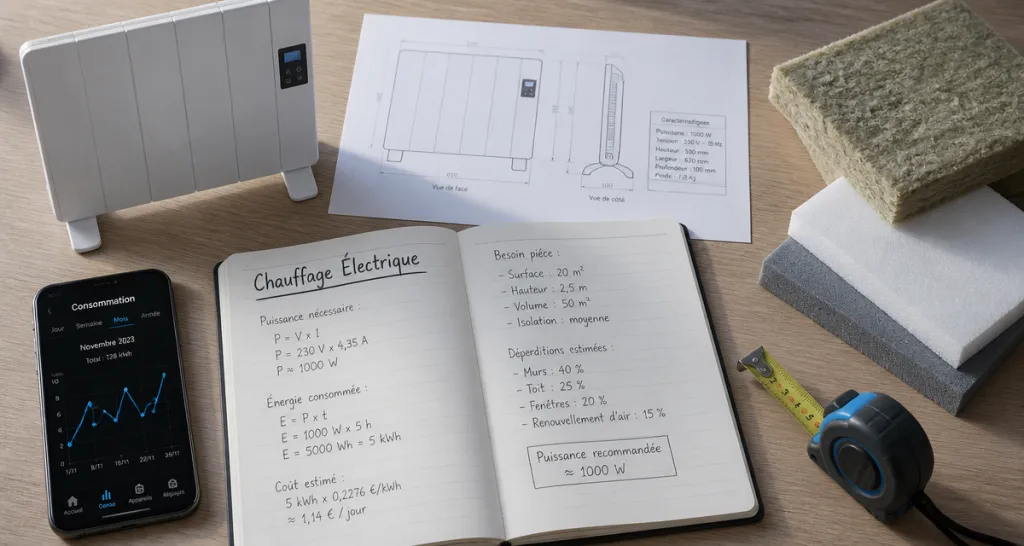 Consommation
Jour Semaine Mois Année
Novembre 2023
Total : 128 kWh
10
8
6
4
2
0
1/11 8/11 15/11 22/11
Accueil Conso Appareils Réglages
Vue de face
Vue de côté
Caractéristiques
Puissance : 1000 W
Hauteur : 580 mm
Profondeur : 100 mm
Chauffage Électrique
Puissance nécessaire :
P = V x I
P = 230 V x 4,35 A
P ≈ 1000 W
Énergie consommée :
E = P x t
E = 1000 W x 5 h
E = 5000 Wh = 5 kWh
Coût estimé :
5 kWh x 0,2276 €/kWh
≈ 1,14 € / jour
Besoin pièce :
- Surface : 20 m²
- Hauteur : 2,5 m
- Volume : 50 m²
- Isolation : moyenne
Déperditions estimées :
- Murs : 40 %
- Toit : 25 %
- Fenêtres : 20 %
- Renouvellement d'air : 15 %
Puissance recommandée
≈ 1000 W